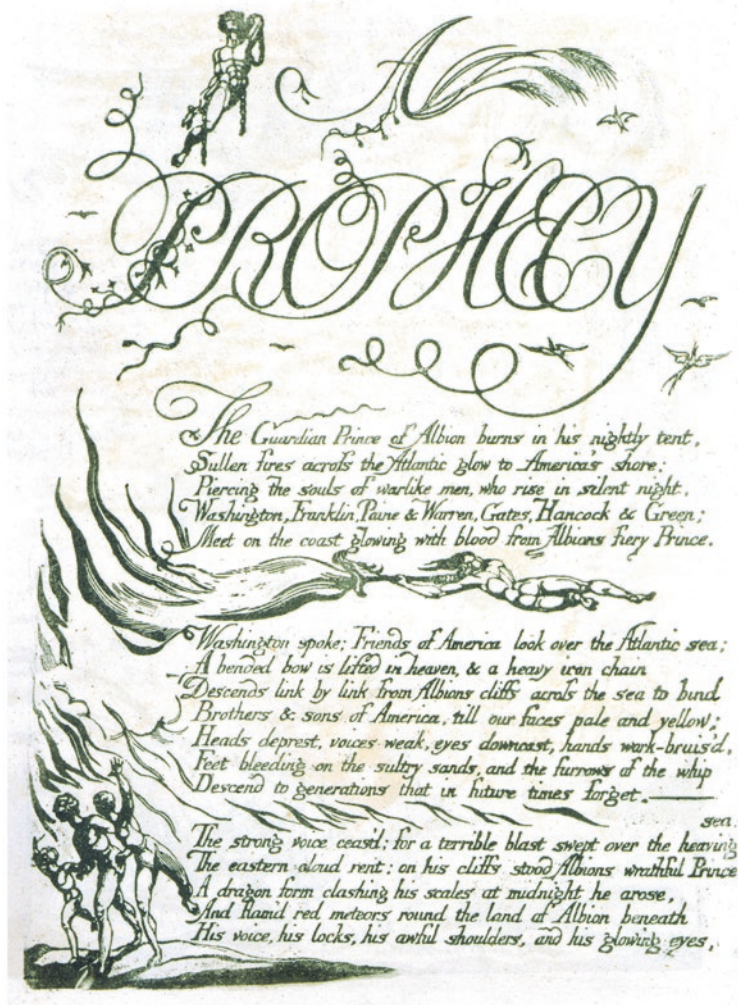 A
PROPHECY
The Guardian Prince of Albion burns in his nightly tent,
Sullen fires across the Atlantic glow to America's shore:
Piercing the souls of warlike men, who rise in silent night,
Washington, Franklin, Paine & Warren, Gates, Hancock & Green;
Meet on the coast glowing with blood from Albions fiery Prince.
Washington spoke; Friends of America look over the Atlantic sea;
A bended bow is lifted in heaven, & a heavy iron chain
Descends link by link from Albions cliffs across the sea to bind
Brothers & sons of America, till our faces pale and yellow;
Heads deprest, voices weak, eyes downcast, hands work-bruis'd,
Feet bleeding on the sultry sands, and the furrows of the whip
Descend to generations that in future times forget.
sea
The strong voice ceas'd; for a terrible blast swept over the heaving
The eastern cloud rent: on his cliffs stood Albions wrathful Prince
A dragon form clashing his scales at midnight he arose,
And flam'd red meteors round the land of Albion beneath
His voice, his locks, his awful shoulders, and his glowing eyes,